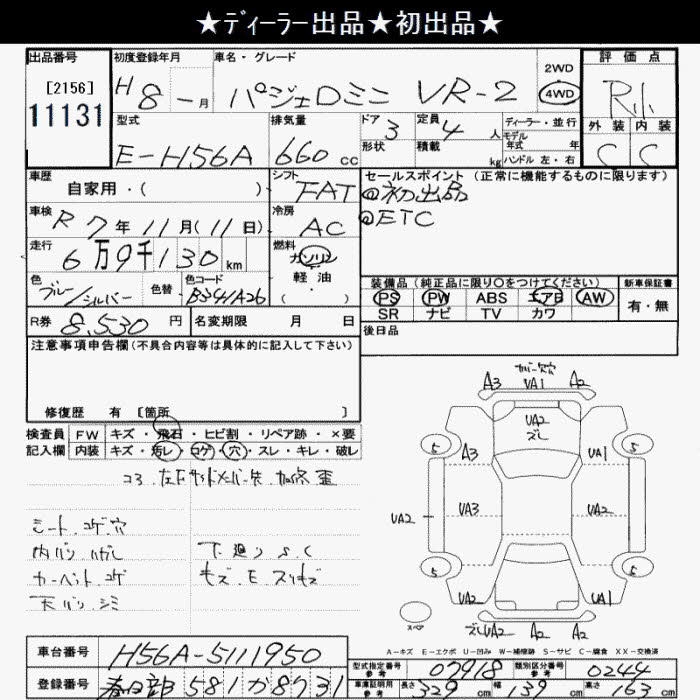 ★ディーラー出品★初出品★
出品番号
[2156]
11131
初度登録年月
H8 - 月
車名・グレード
パジェロミニ VR-2
2WD
4WD
評価点
R
外装 内装
C C
型式
E-H56A
排気量
660 cc
ドア 3
形状
定員 4 人
積載 kg
ディーラー・並行
モデル
年式 年
ハンドル 左・右
車歴
自家用・( )
シフト
FAT
セールスポイント (正常に機能するものに限ります)
@初出品
@ETC
車検
R7年11月(11日)
冷房
AC
走行
6万9千130km
燃料
ガソリン
軽油
色
ブルー/シルバー
色替
色コード
B34A/A26
装備品 (純正品に限り○をつけてください)
PS PW ABS エアB AW
SR ナビ TV カワ
新車保証書
有・無
R券
8,530 円
名変期限 月 日
後日品
注意事項申告欄 (不具合内容等は具体的に記入して下さい)
修復歴 有 [箇所 ]
検査員
記入欄
FW キズ・飛石・ヒビ割・リペア跡・×要
内装 キズ・汚レ・コゲ・穴・スレ・キレ・破レ
シート コゲ.穴
内バリ ハガレ
カーペット コゲ
天バリ シミ
下廻り S.C
キズ.E スリキズ
カバー欠穴
A3 VA1 A2
VA2
ズレ
5 5
A3 VA1
VA2 VA3 VA2 VA2
5 5
VA2 VA1
スペア
ズレVA2 A2 A2
A-キズ E-エクボ U-凹み W-補修跡 S-サビ C-腐食 XX-交換済
車台番号
H56A-5111950
登録番号
春日部 581 か 8731
型式指定番号
参考
07918
類別区分番号
参考
0244
車庫証明用
参考
長さ 329 cm
幅 139 cm
高さ 163 cm